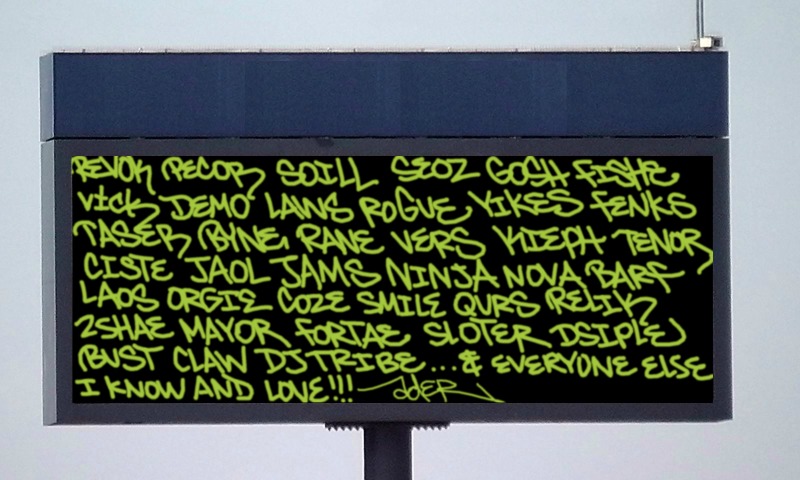 REVOK PECOR SOILL SEOZ GOSH FISHE
VICK DEMO LAWS ROGUE YIKES FENKS
TASER BYNE RANE VERS KIEPH TENOR
CISTE JAOL JAMS NINJA NOVA BARF
LAOS ORGIE COZE SMILE QURS RELIK
2SHAE MAYOR FORTAE SLOTER DSIPLE
BUST CLAW DJ TRIBE...& EVERYONE ELSE
I KNOW AND LOVE!!! JDER